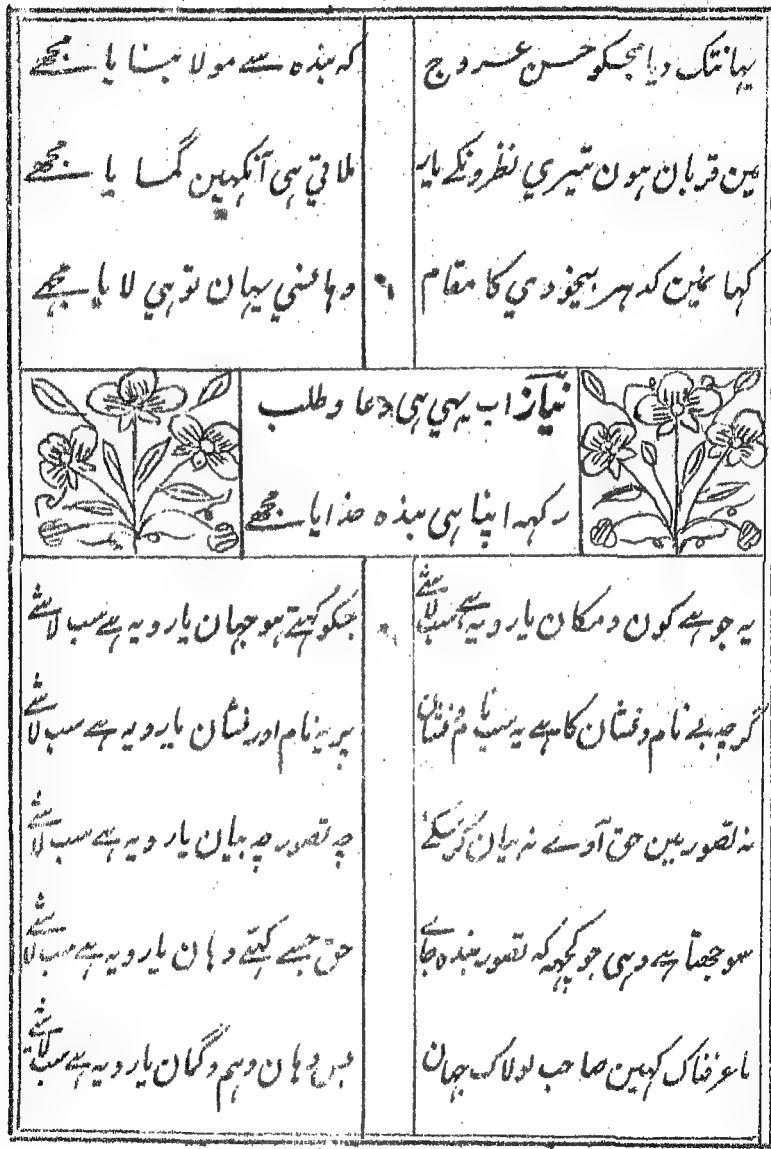 یہانتک دیا مجکو حسن عروج
کہ بندہ سے مولا بنایا مجھے
مین قربان ہون تیري نظرونکے یار
ملاتي ہی آنکھین گمایا مجھے
کہا نمین کدہر بیخودي کا مقام
وہانسي یہان تو ہي لایا مجھے
نیاز اب یہي ہی دعا و طلب
رکہہ اپنا ہی بندہ خدایا مجھے
یہ جو ہے کون و مکان یارو یہ ہے سب لاشے
جسکو کہتے ہو جہان یارو یہ ہے سب لاشے
گرچہ بے نام و نشان کا ہے یہ سب نام و نشان
پر یہ نام اور نشان یارو یہ ہے سب لاشے
نہ تصور مین حق آوے نہ بیان کر سکئے
چہ تصور چہ بیان یارو یہ ہے سب لاشے
سوجھتا ہے وہی جو کچھہ کہ تصور بندہ جاے
حق جسے کہتے وہان یارو یہ ہے سب لاشے
ماعرفناک کہین صاحب لولاک جہان
بس وہان وہم و گمان یارو یہ ہے سب لاشے